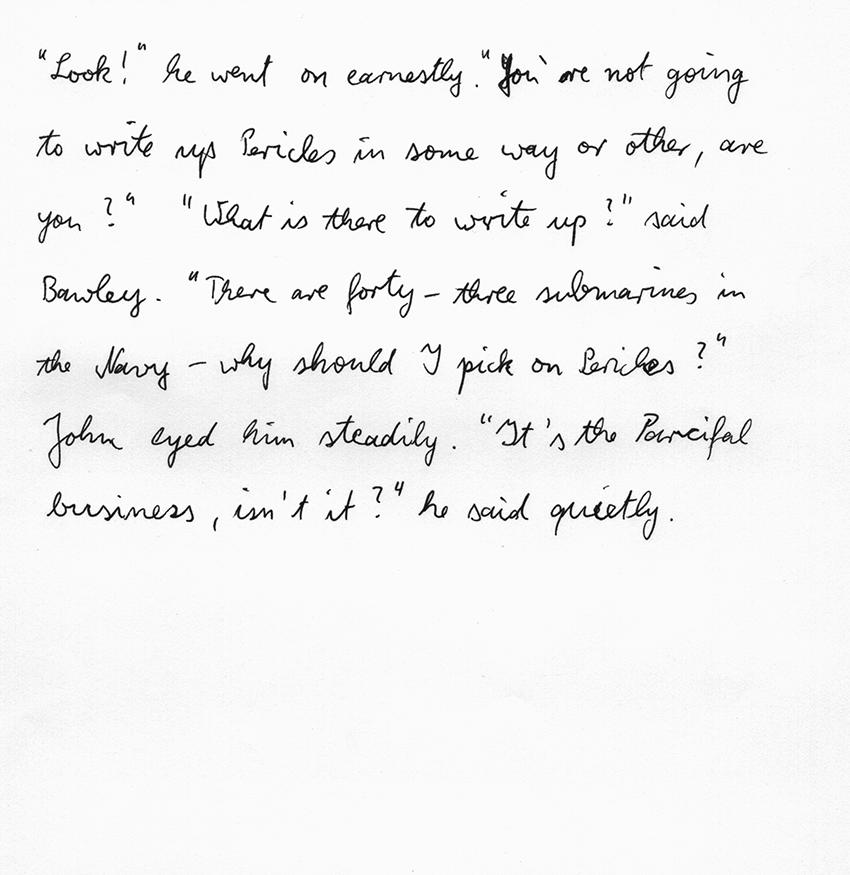 "Look!" he went on earnestly. "You are not going
to write up Pericles in some way or other, are
you?" "What is there to write up?" said
Bawley. "There are forty-three submarines in
the Navy - why should I pick on Pericles?"
John eyed him steadily. "It's the Parcifal
business, isn't it?" he said quietly.